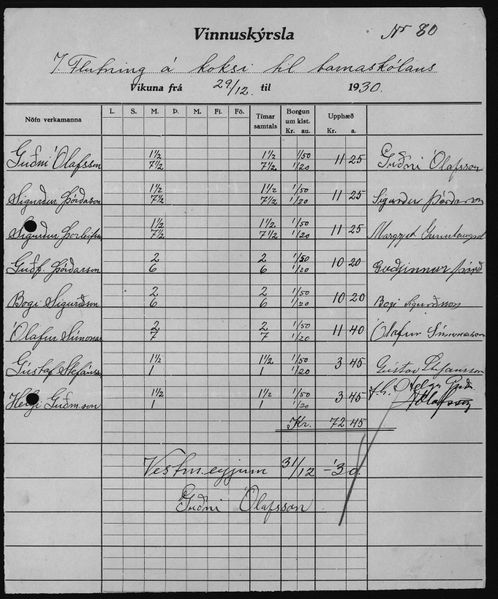 Vinnuskýrsla
Nr 80
Flutning á koksi til barnaskólans
Vikuna frá 29/12. til 1930.
Nöfn verkamanna L. S. M. Þ. M. Fi. Fö. Tímar samtals Borgun um klst. Kr. au. Upphæð Kr. a.
Guðni Ólafsson 1½ 1½ 1/50 Guðni Ólafsson
7½ 7½ 1/20 11 25
Sigurður Þórðason 1½ 1½ 1/50 Sigurður Þórðarson
7½ 7½ 1/20 11 25
Sigurður Þorleifs 1½ 1½ 1/50
7½ 7½ 1/20 11 25
Guðf. Þórðarson 2 2 1/50
6 6 1/20 10 20
Bogi Sigurðson 2 2 1/50 Bogi Sigurðsson
6 6 1/20 10 20
Ólafur Símonar 2 2 1/50 Ólafur Símonarson
7 7 1/20 11 40
Gústaf Stefáns 1½ 1½ 1/50 Gústav Stefánsson
1 1 1/20 3 45
Helgi Guðmson 1½ 1½ 1/50
1 1 1/20 3 45
Kr. 72 45
Vestm.eyjum 31/12 -'30
Guðni Ólafsson